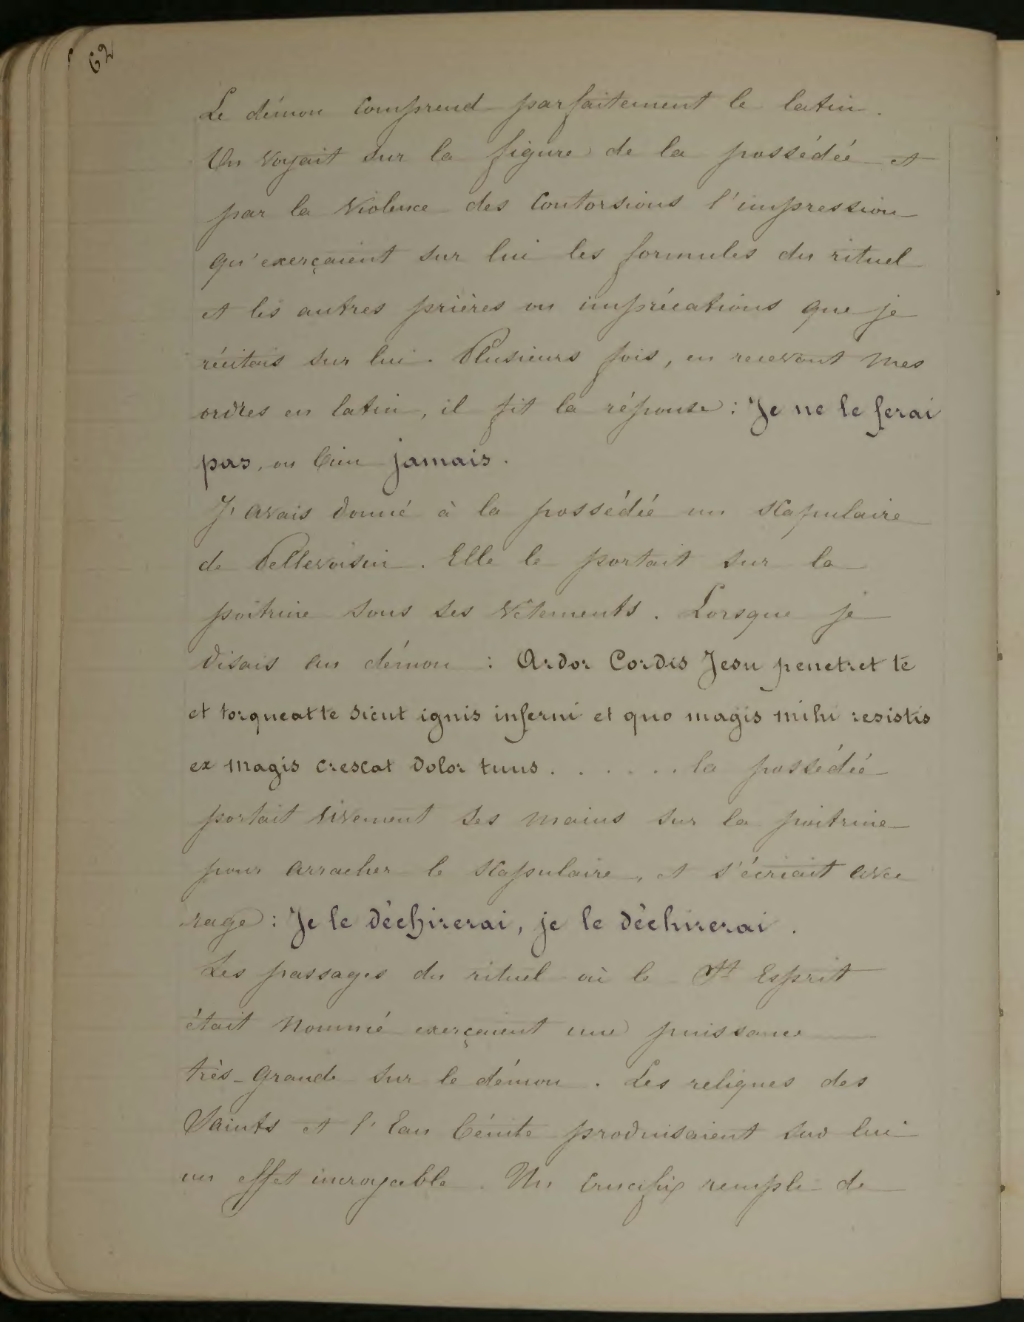 62
Le démon comprend parfaitement le latin.
On voyait sur la figure de la possédée et
par la violence des contorsions l'impression
qu'exerçaient sur lui les formules du rituel
et les autres prières ou imprécations que je
récitais sur lui. Plusieurs fois, en recevant mes
ordres en latin, il fit la réponse : Je ne le ferai
pas, ou bien jamais.
J'avais donné à la possédée un scapulaire
de Pellevoisin. Elle le portait sur la
poitrine sous ses vêtements. Lorsque je
disais au démon : Ardor Cordis Jesu penetret te
et torqueat te sicut ignis inferni et quo magis mihi resistis
ex magis crescat dolor tuus . . . . . . la possédée
portait vivement ses mains sur la poitrine
pour arracher le scapulaire, et s'écriait avec
rage : Je le déchirerai, je le déchirerai.
Les passages du rituel où le St Esprit
était nommé exerçaient une puissance
très-grande sur le démon. Les reliques des
Saints et l'Eau bénite produisaient sur lui
un effet incroyable. Un Crucifix rempli de